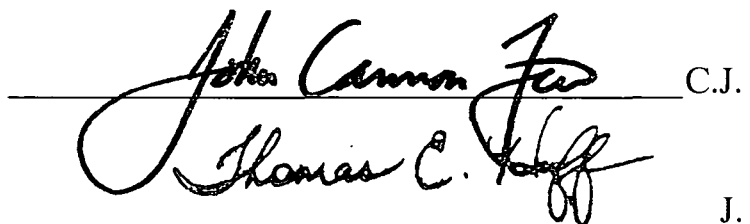 John Cannon Few C.J.
Thomas E. Huff
J.